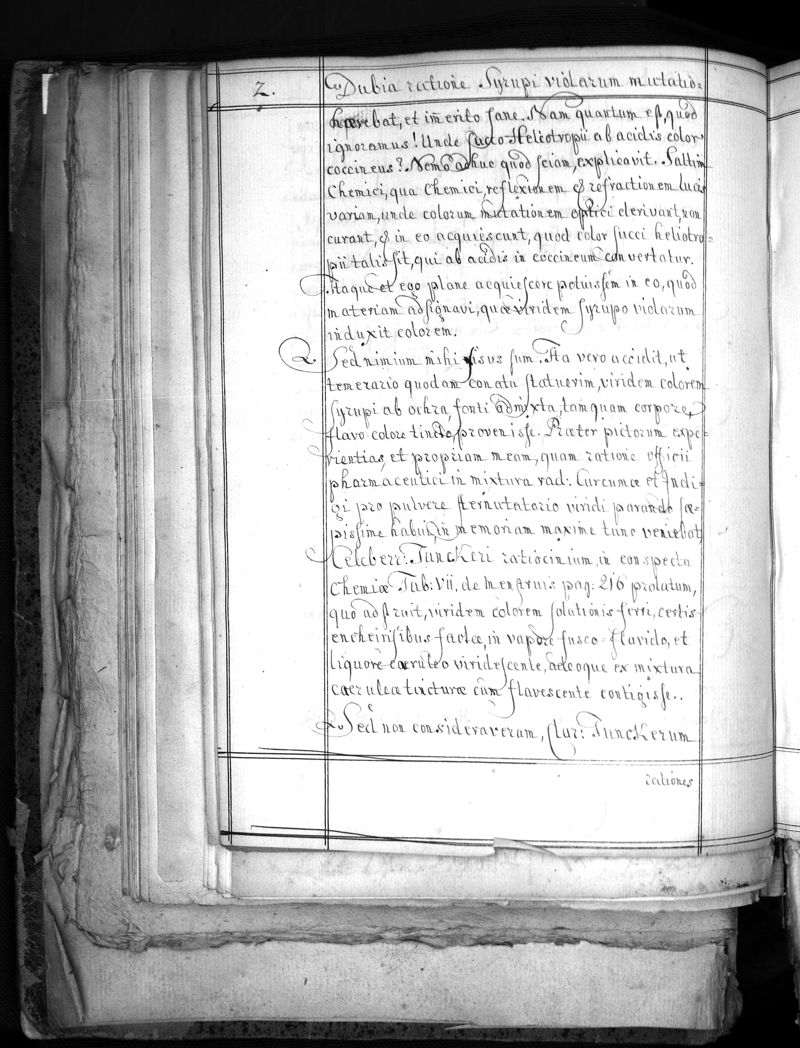 2. Dubia ratione Syrupi violarum mutatio-
hærebat, et im̅erito sane. Nam quantum est, quod
ignoramus! Unde succo Heliotropii ab acidis color
coccineus? Nemo adhuc quod sciam, explicavit. Saltim
Chemici, qua Chemici, reflexionem & refractionem lucis
variam, unde colorum mutationem optici derivant, non
curant, & in eo acquiescunt, quod color succi heliotro-
pii talis sit, qui ab acidis in coccineum convertatur.
Itaque et ego plane acquiescere potuissem in eo, quod
materiam adsignavi, quæ viridem syrupo violarum
induxit colorem.
Sed nimium mihi fisus sum. Ita vero accidit, ut
temerario quodam conatu statuerim, viridem colorem
syrupi ab ochra, fonti admixta, tamquam corpore,
flavo colore tincto, provenisse. Præter pictorum expe-
rientias, et propriam meam, quam ratione officii
pharmaceutici in mixtura rad: Curcumæ et Indi-
gi pro pulvere sternutatorio viridi parando sæ-
pissime habui, in memoriam maxime tunc veniebat,
Celeberr: Junckeri ratiocinium, in conspectu
Chemiæ Tab: VII. de Menstruis pag: 216 prolatum,
quo adstruit, viridem colorem solutionis ferri, certis
encheirisibus factæ, in vapore fusco-flavido, et
liquore cæruleo viridescente, adeoque ex mixtura
cærulea tincturæ cum flavescente contigisse..
Sed non consideraveram, Clar: Junckerum
rationes